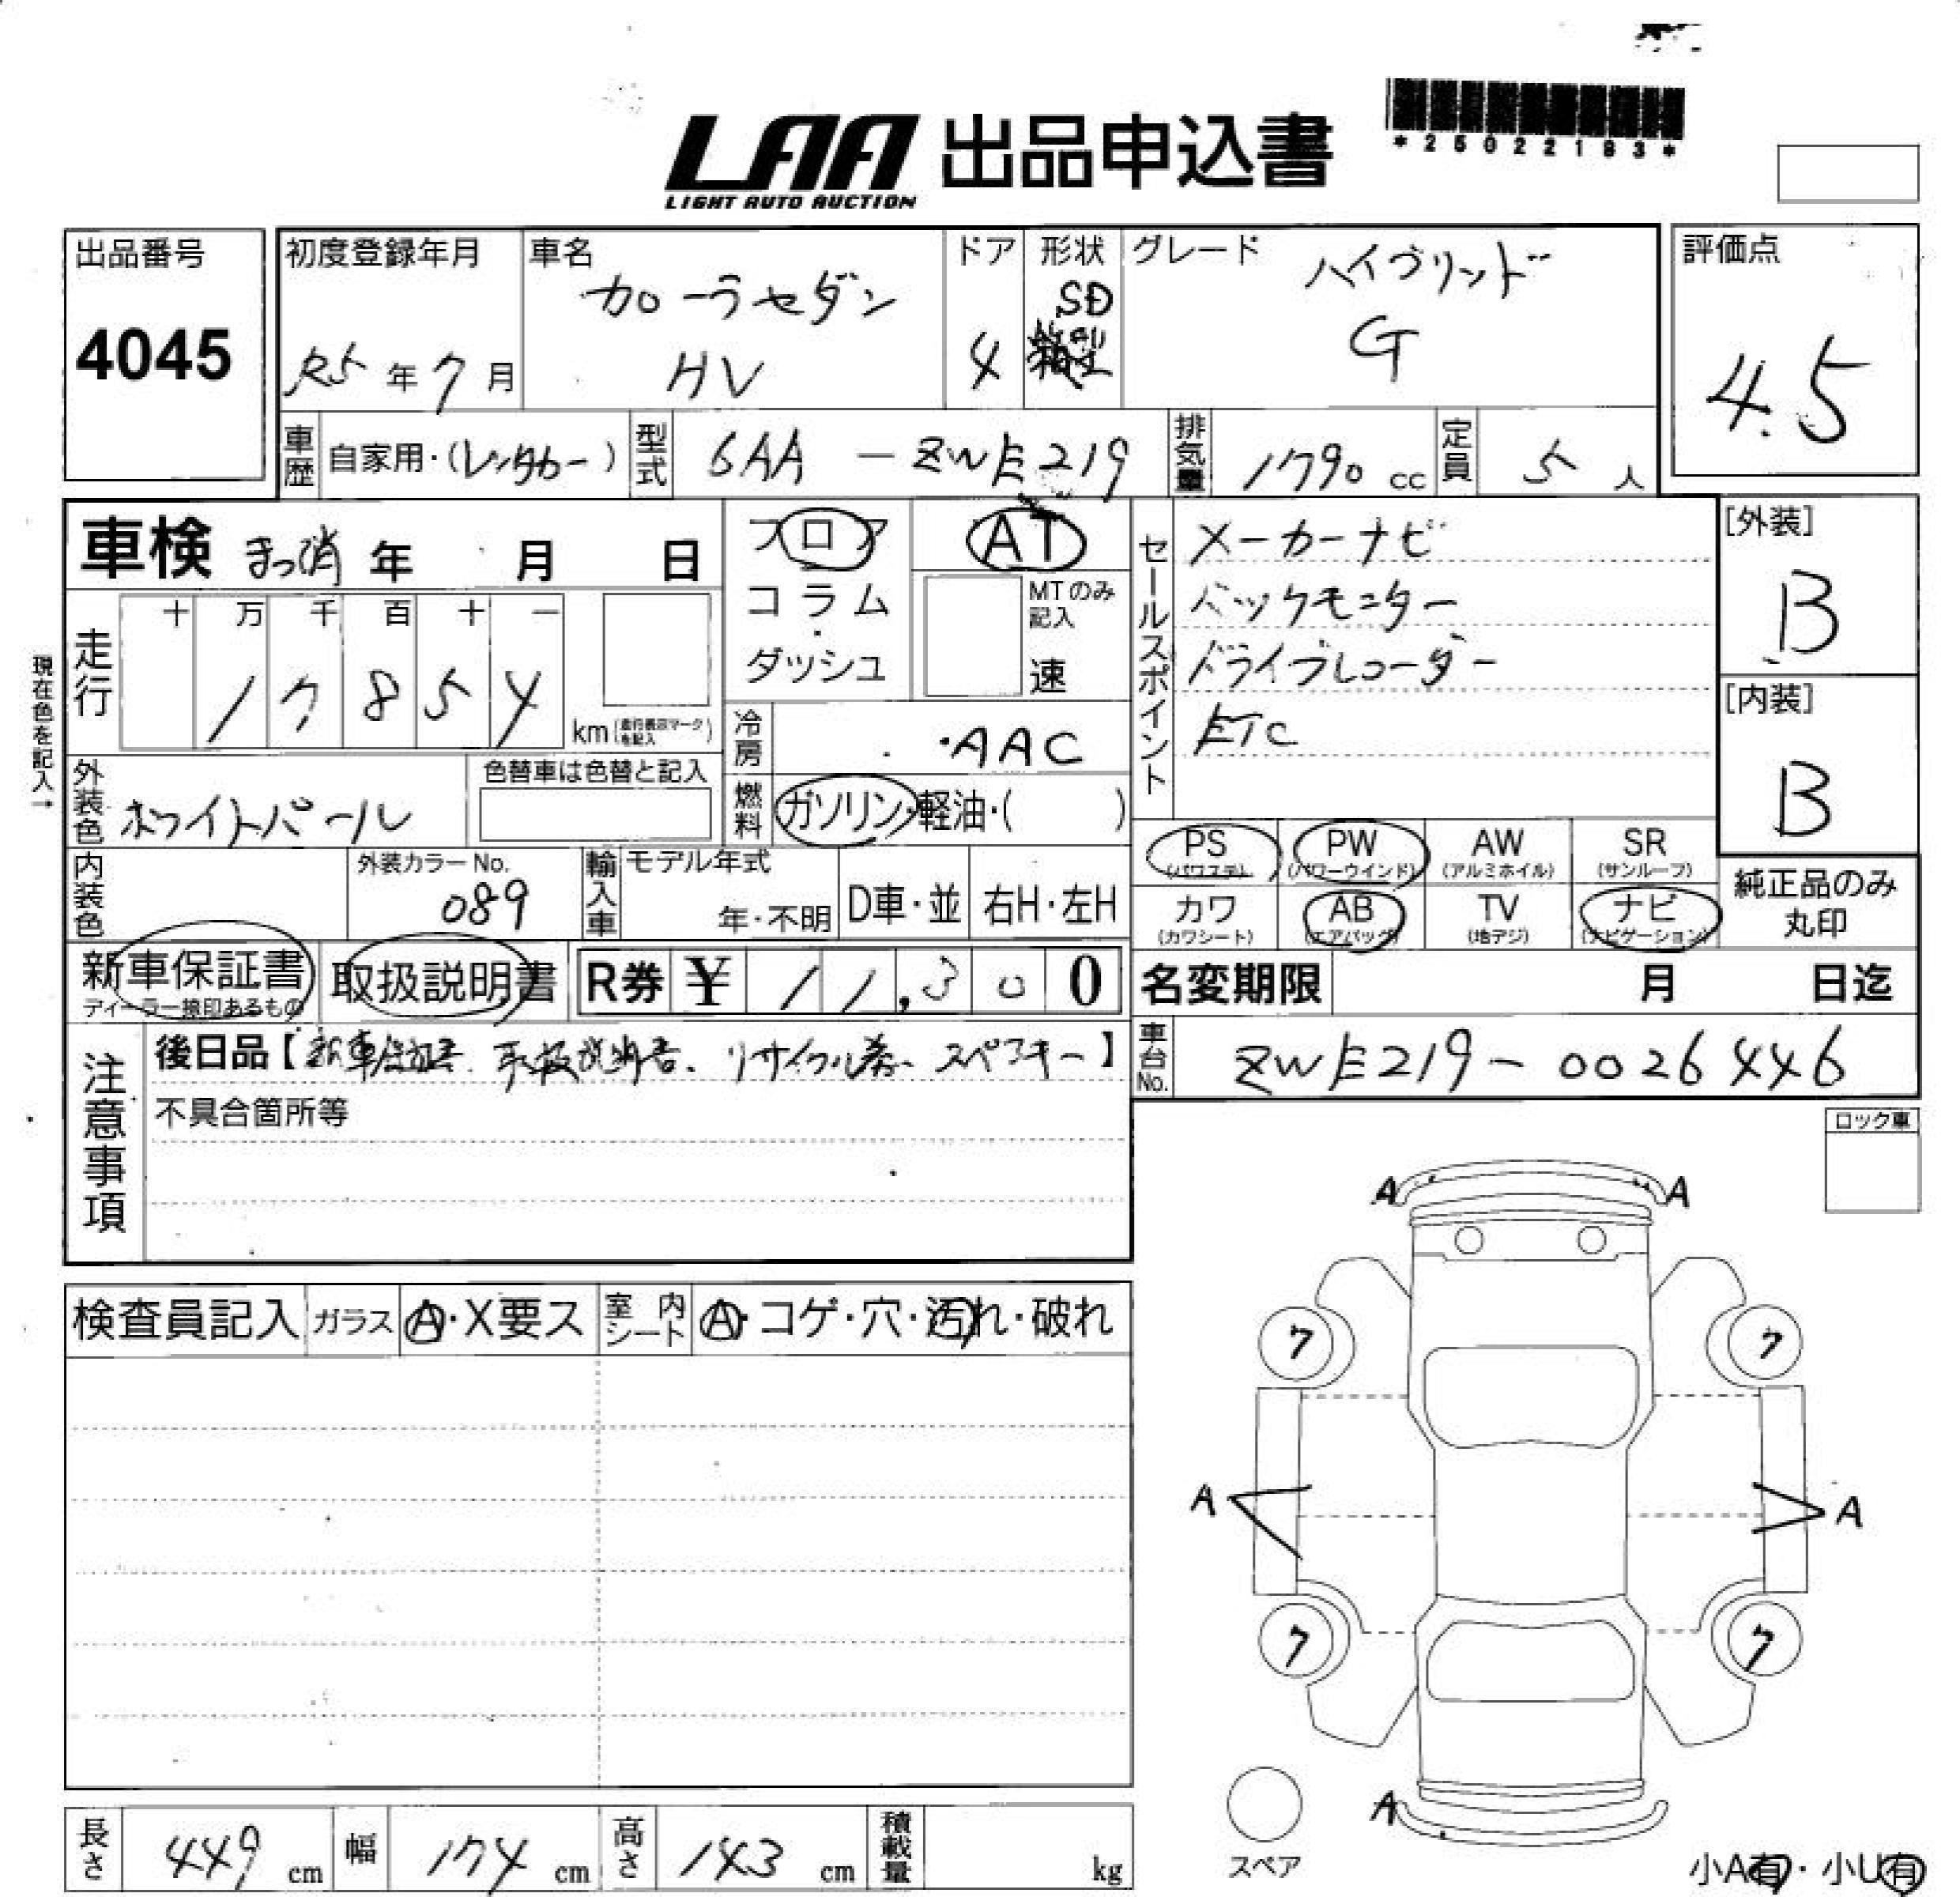 LAA 出品申込書
LIGHT AUTO AUCTION
*25022183*
出品番号
4045
初度登録年月
R5年7月
車名
カローラセダン
HV
ドア
4
形状
SD
箱型
グレード
ハイブリッド
G
評価点
4.5
車歴 自家用・(レンタカー)
型式 6AA-ZWE219
排気量 1790 cc
定員 5 人
車検 まっ消 年 月 日
フロア
コラム
・
ダッシュ
AT
MTのみ記入
速
セールスポイント
メーカーナビ
バックモニター
ドライブレコーダー
ETC
[外装]
B
[内装]
B
現在色を記入→
走行
十 万 千 百 十 一
1 7 8 5 4
km(走行表示マークを記入)
冷房 ・AAC
外装色 ホワイトパール
色替車は色替と記入
燃料 ガソリン・軽油・( )
PS (パワステ)
PW (パワーウインド)
AW (アルミホイル)
SR (サンルーフ)
カワ (カワシート)
AB (エアバッグ)
TV (地デジ)
ナビ (ナビゲーション)
純正品のみ
丸印
内装色
外装カラーNo.
089
輸入車
モデル年式
年・不明
D車・並
右H・左H
新車保証書
ディーラー捺印あるもの
取扱説明書
R券 ¥ 11,300
名変期限 月 日迄
注意事項
後日品【新車保証書、取扱説明書、リサイクル券、スペアキー】
不具合箇所等
車台No. ZWE219-0026446
ロック車
A A
検査員記入 ガラス A・X要ス
室内シート A・コゲ・穴・汚れ・破れ
7 7
A A
7 7
A
スペア
小A有・小U有
長さ 449 cm
幅 174 cm
高さ 143 cm
積載量 kg